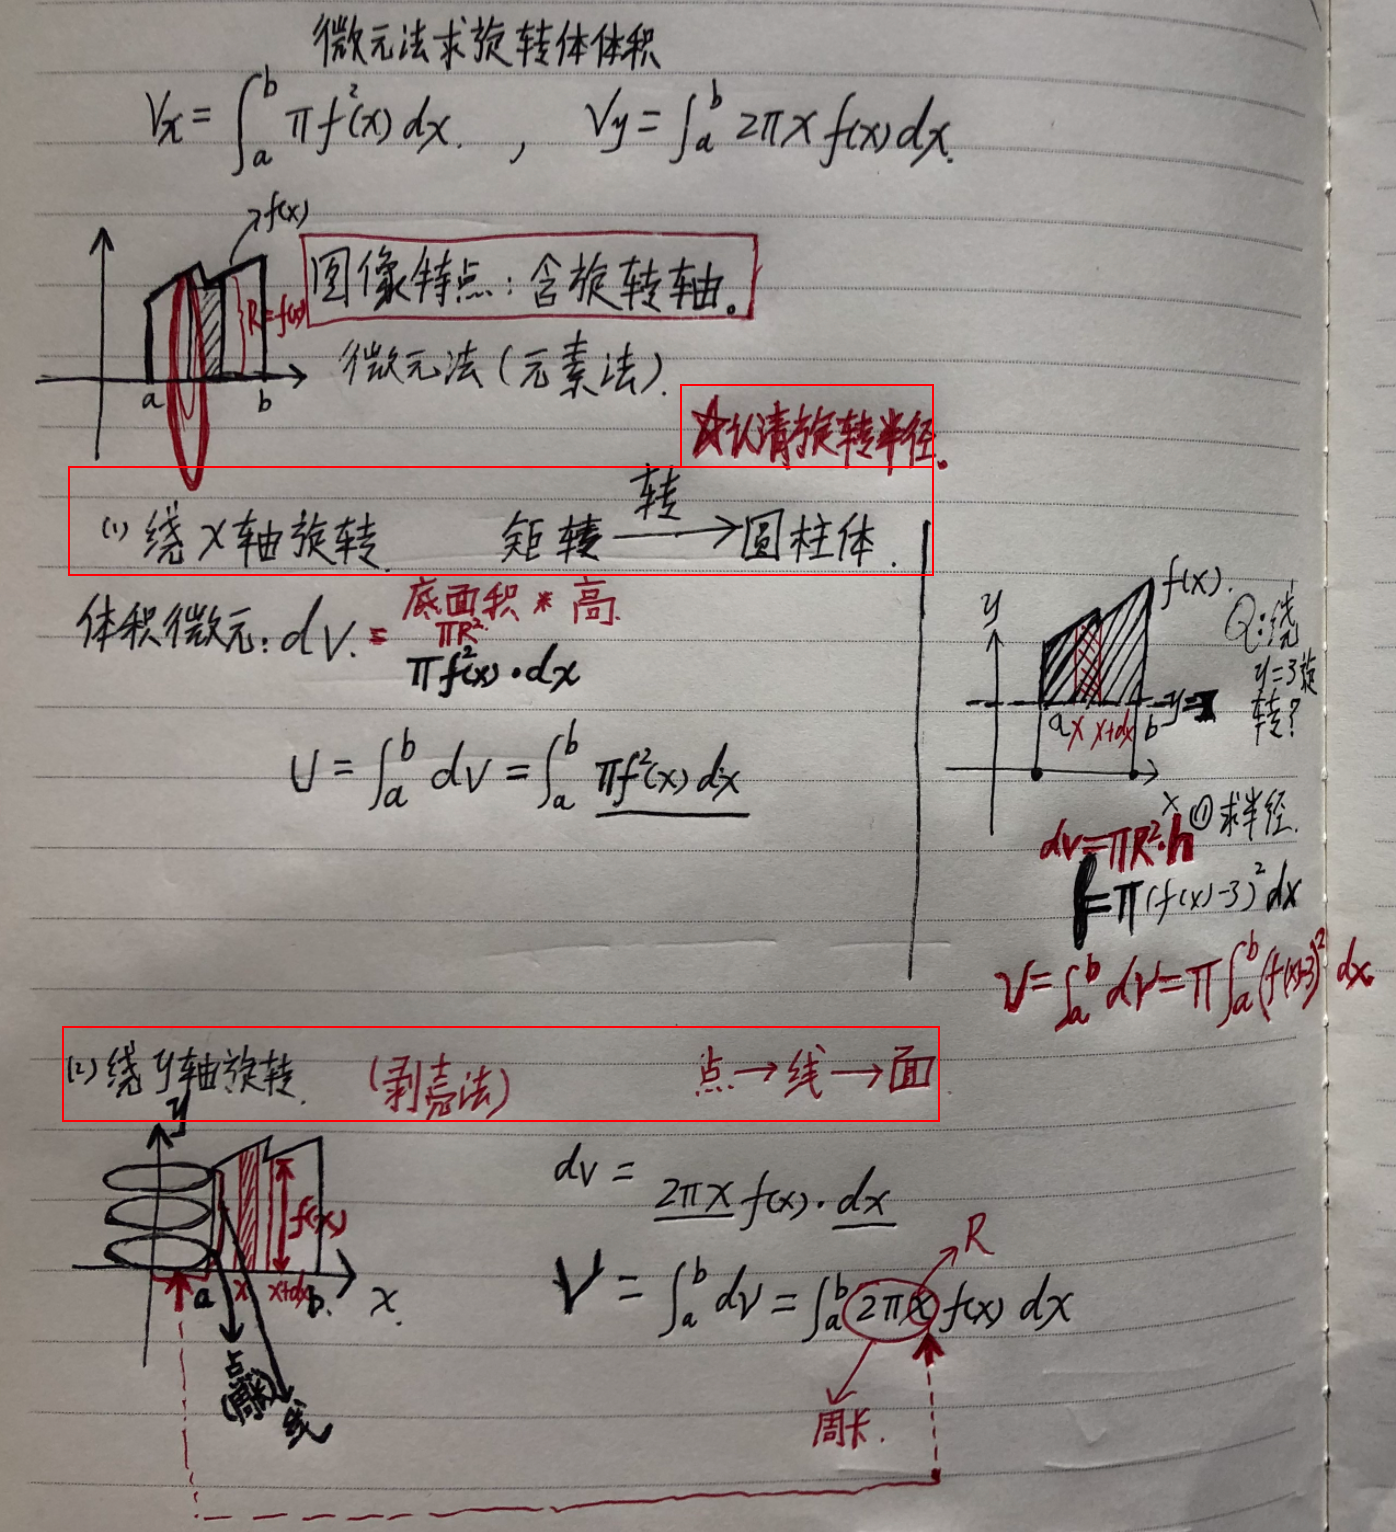 微元法求旋转体体积
Vx = ∫_a^b πf²(x) dx. , Vy = ∫_a^b 2πx f(x) dx.
f(x)
图像特点: 含旋转轴。
R=f(x)
a b
微元法 (元素法).
☆认清旋转半径.
(1) 绕 x 轴旋转. 矩 转 →圆柱体.
体积微元: dV. = 底面积 * 高.
πR²
πf²(x)·dx
V = ∫_a^b dV = ∫_a^b πf²(x) dx
y f(x).
Q:绕
y=3旋
转?
a x x+dx b y=
x
① 求半径.
dv=πR²·h
=π(f(x)-3)² dx
V=∫_a^b dv=π∫_a^b (f(x)-3)² dx.
(2) 绕 y 轴旋转. (剥壳法) 点→线→面
y
f(x)
a x x+dx b. x.
点
(周长)
线
dv = 2πx f(x)·dx
R
V = ∫_a^b dv = ∫_a^b 2πx f(x) dx
周长.